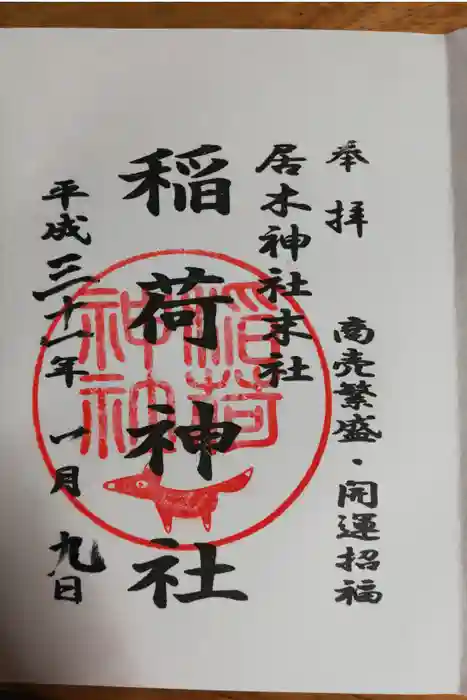 奉拝
商売繁盛・開運招福
居木神社末社
稲荷神社
平成三十一年 一月 九日
稲荷